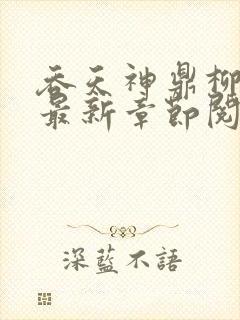 吞天神鼎柳
最新章節閱
深藍不語